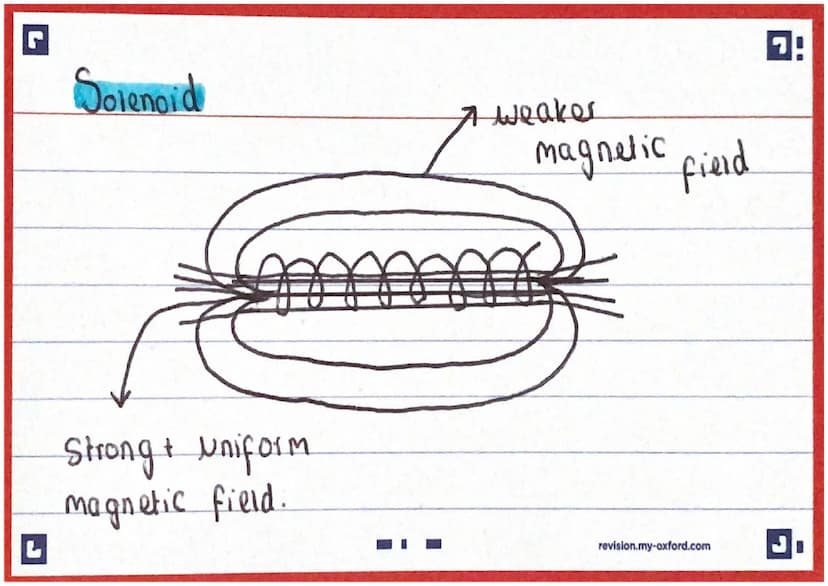 Solenoid
weaker
magnetic field
Strong + uniform
magnetic field.
revision.my-oxford.com